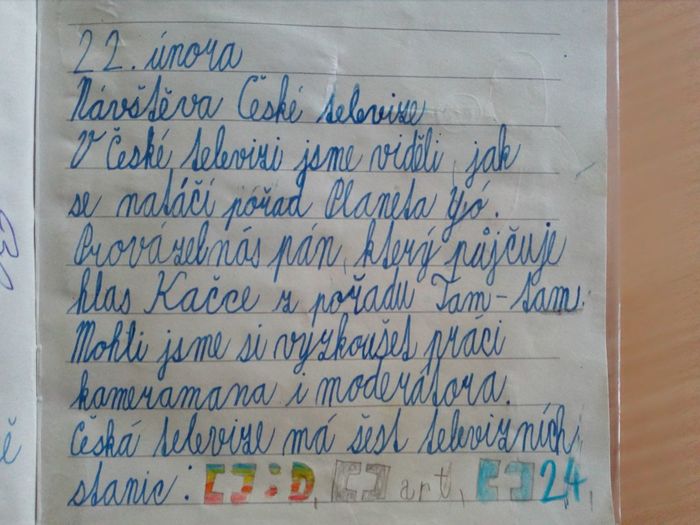 22. února
Návštěva České televize
V České televizi jsme viděli, jak
se natáčí pořad Planeta Yó.
Provázel nás pán, který půjčuje
hlas Kačce z pořadu Tam-tam.
Mohli jsme si vyzkoušet práci
kameramana i moderátora.
Česká televize má šest televizních
stanic: :D, art, 24,